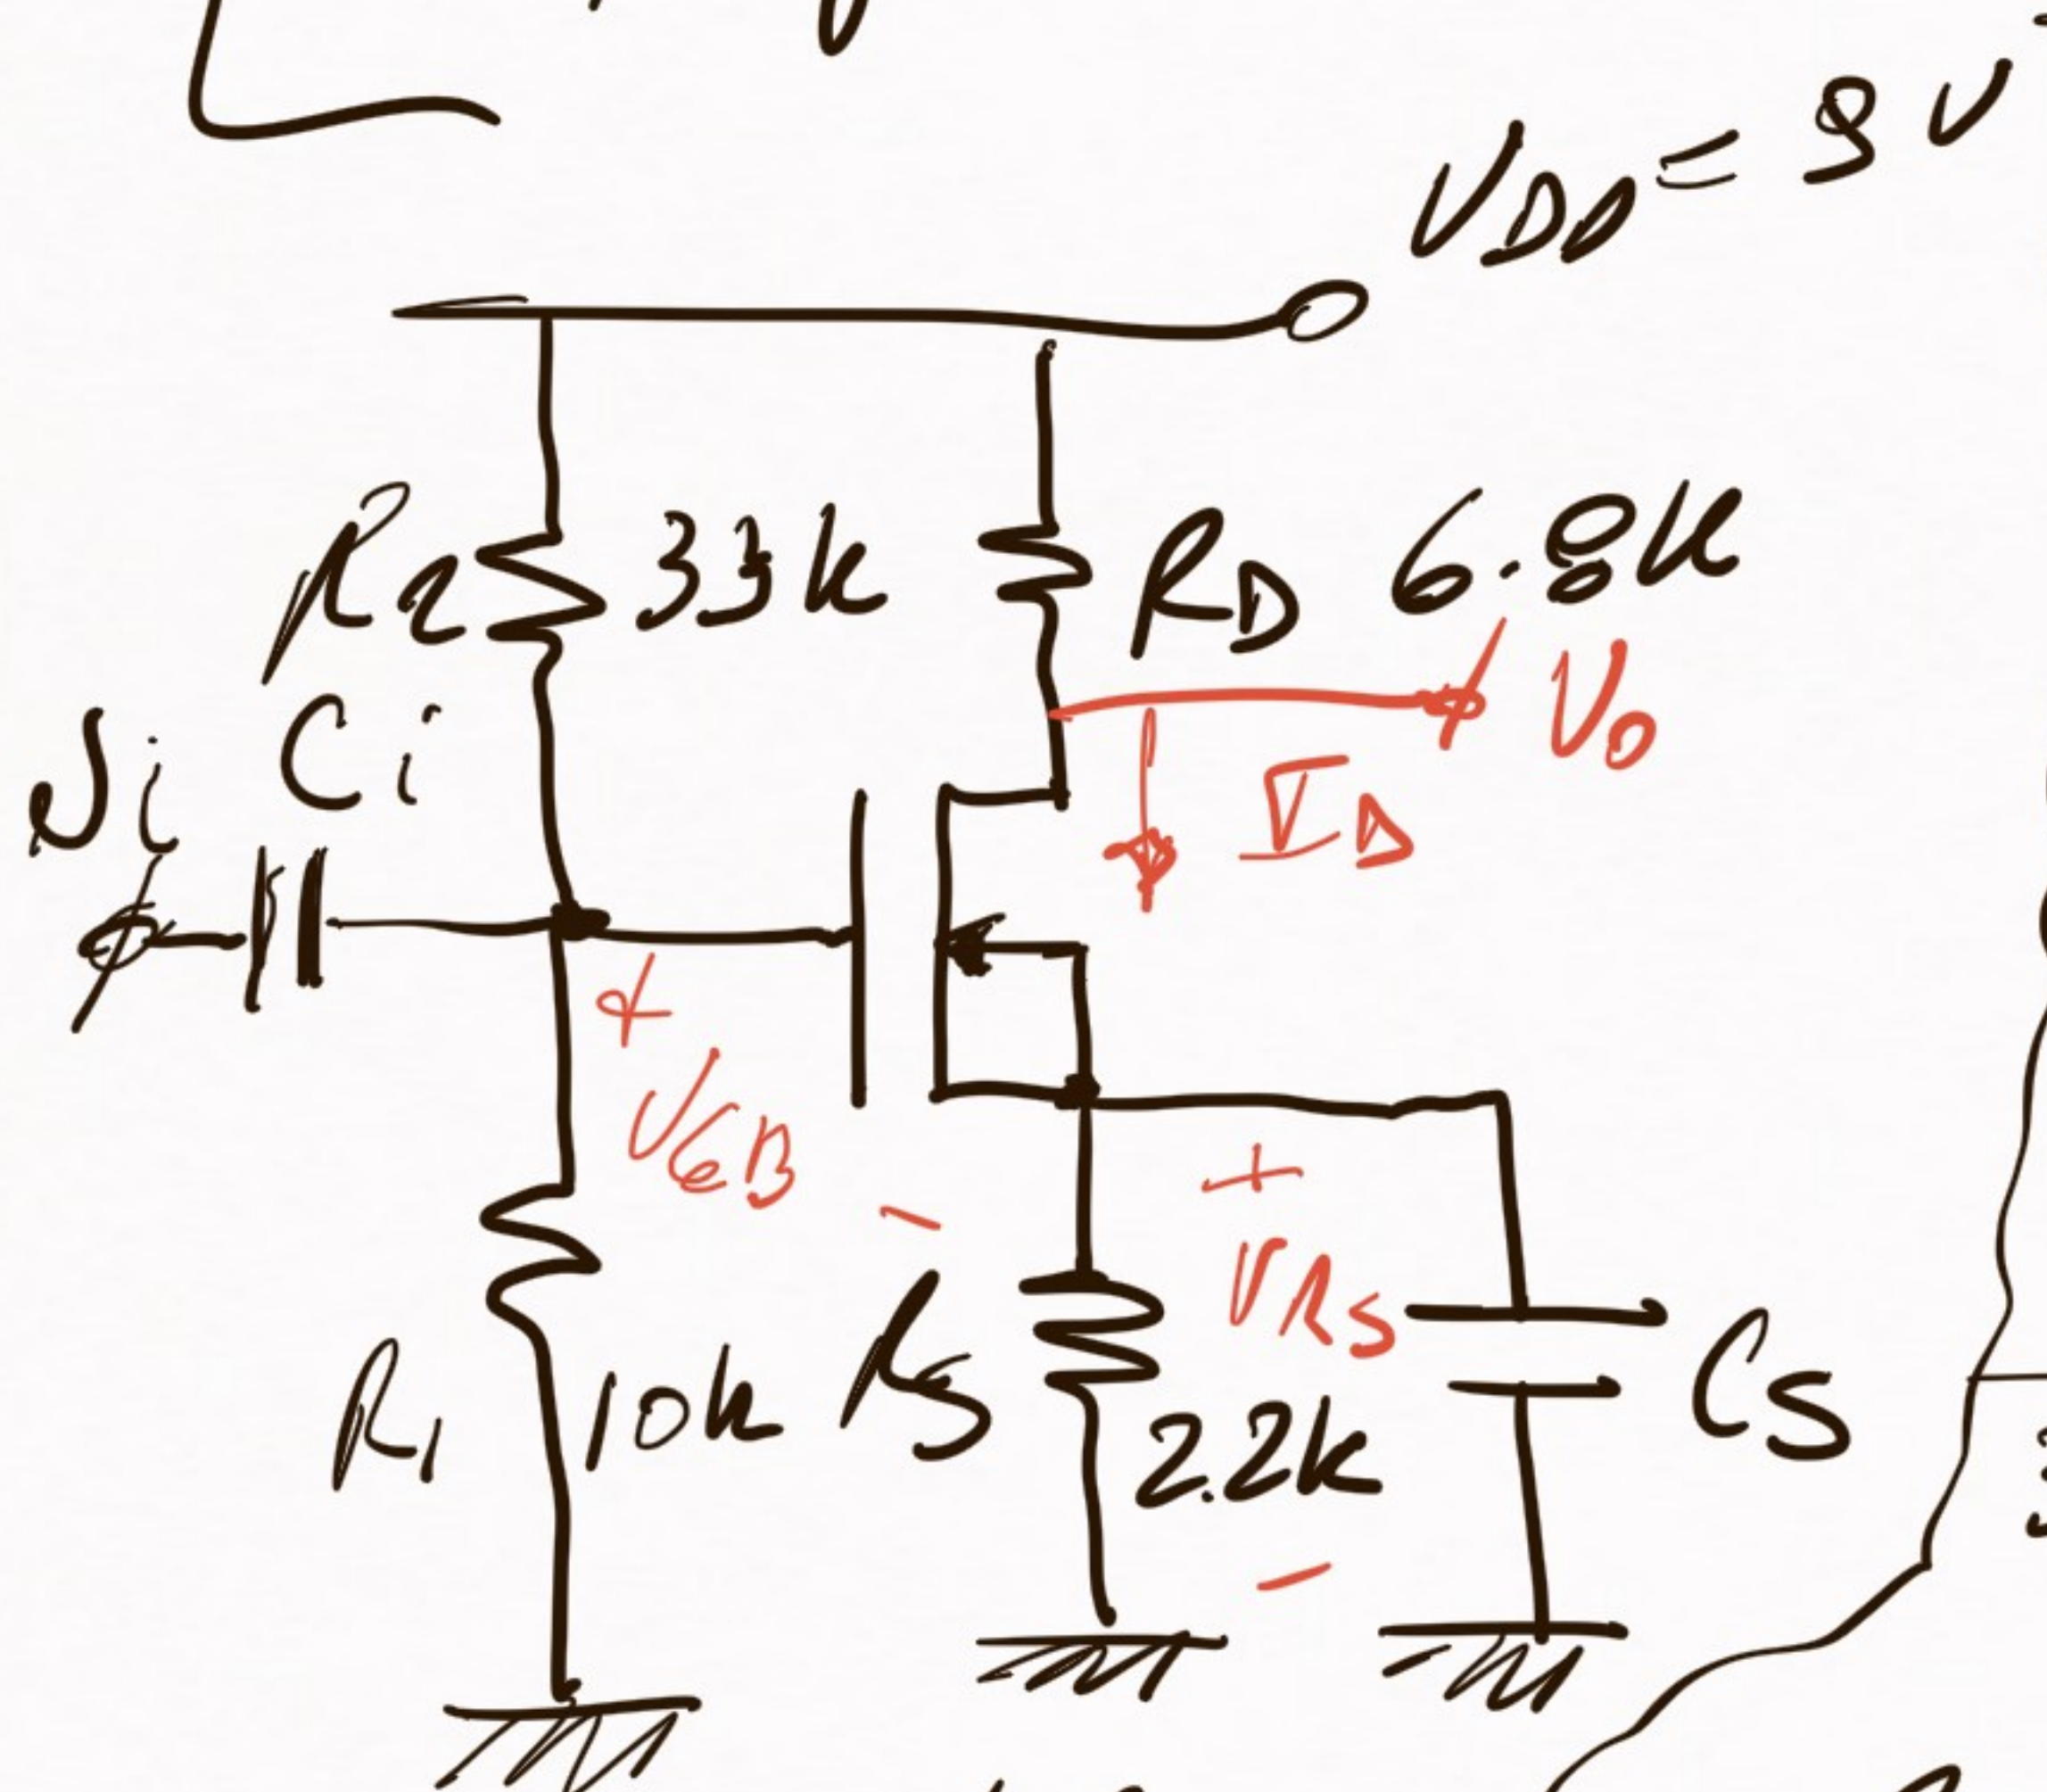 VDD = 9V
R2 33k RD 6.8k
Vo
vi Ci
ID
+
VGB
-
+
RS VRS
R1 10k 2.2k CS
-